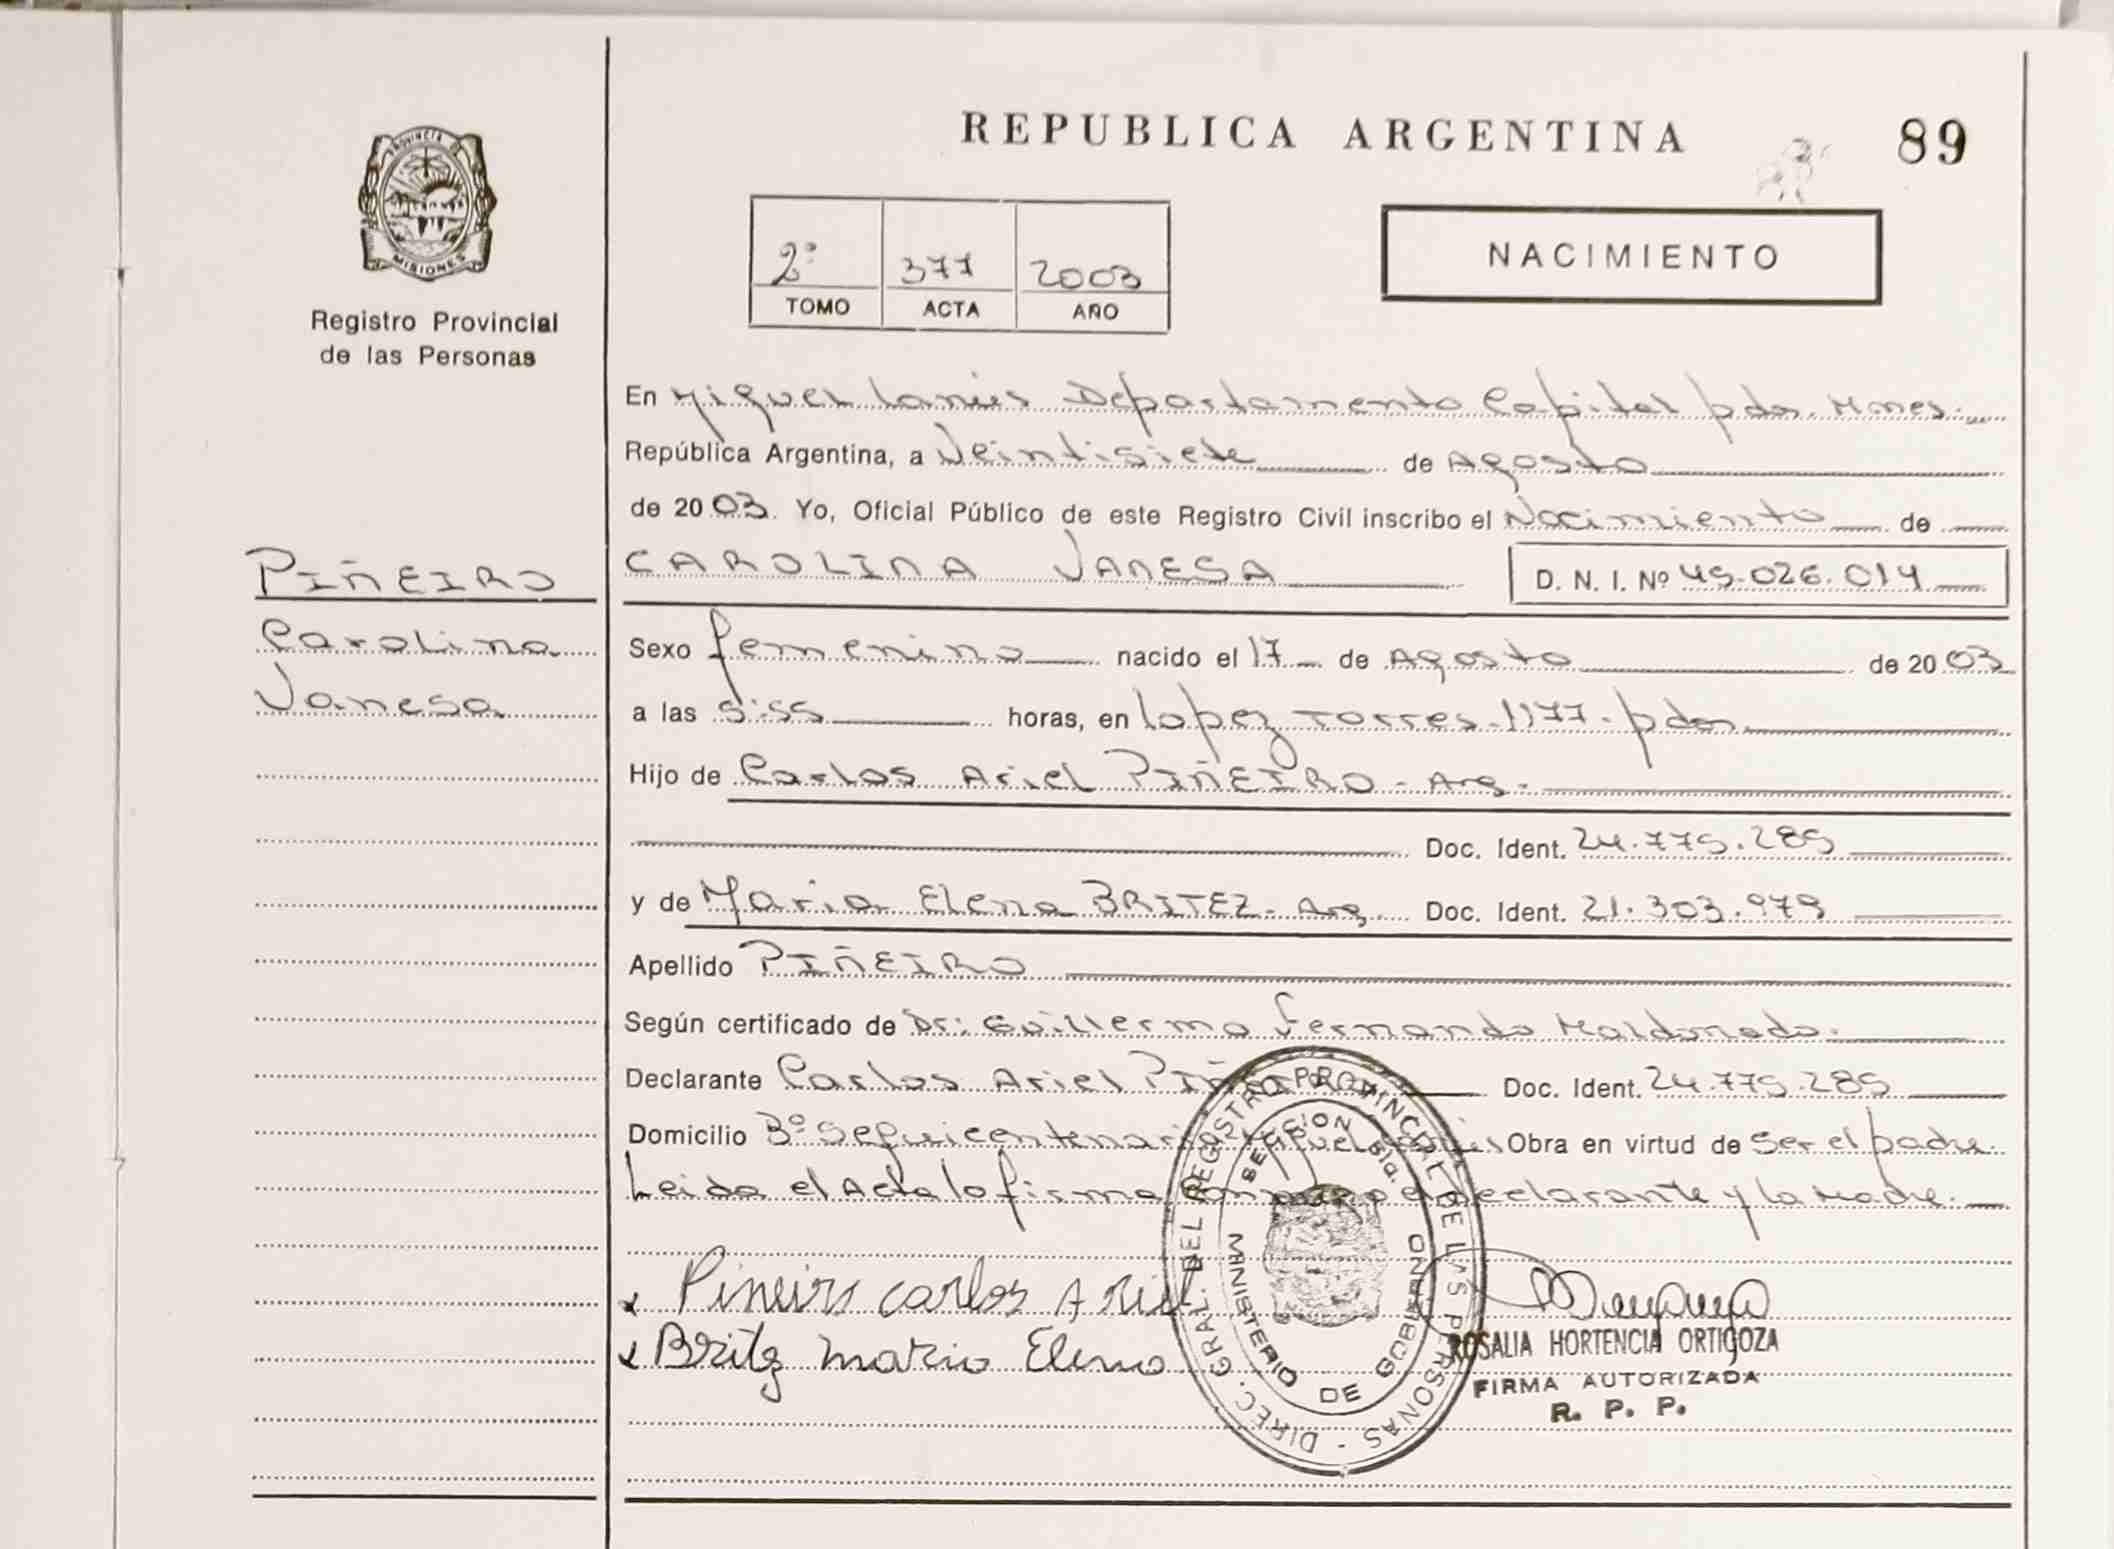 REPUBLICA ARGENTINA
89
PROVINCIA DE
MISIONES
Registro Provincial
de las Personas
2º 377 2003
TOMO ACTA AÑO
NACIMIENTO
En Miguel Lanús Departamento Capital pdas. Mnes.
República Argentina, a Veintisiete de Agosto
de 2003. Yo, Oficial Público de este Registro Civil inscribo el Nacimiento de
PIÑEIRO
Carolina
Vanesa
CAROLINA VANESA D. N. I. Nº 45.026.014
Sexo femenino nacido el 17 de Agosto de 2003
a las 9:55 horas, en Lopez Torres 1177. pdas
Hijo de Carlos Ariel PIÑEIRO - Arg.
Doc. Ident. 24.775.285
y de Maria Elena BRITEZ - Arg. Doc. Ident. 21.303.979
Apellido PIÑEIRO
Según certificado de Dr: Guillermo Fernando Maldonado.
Declarante Carlos Ariel PIÑEIRO Doc. Ident. 24.775.285
Domicilio Bº Sequicentenario Miguel Lanús Obra en virtud de Ser el padre
Leida el Acta lo firma conmigo el declarante y la Madre.
x Piñeiro Carlos Ariel
x Britez Maria Elena
DIREC. GRAL. DEL REGISTRO PROVINCIAL DE LAS PERSONAS
MINISTERIO DE GOBIERNO
ROSALIA HORTENCIA ORTIGOZA
FIRMA AUTORIZADA
R. P. P.